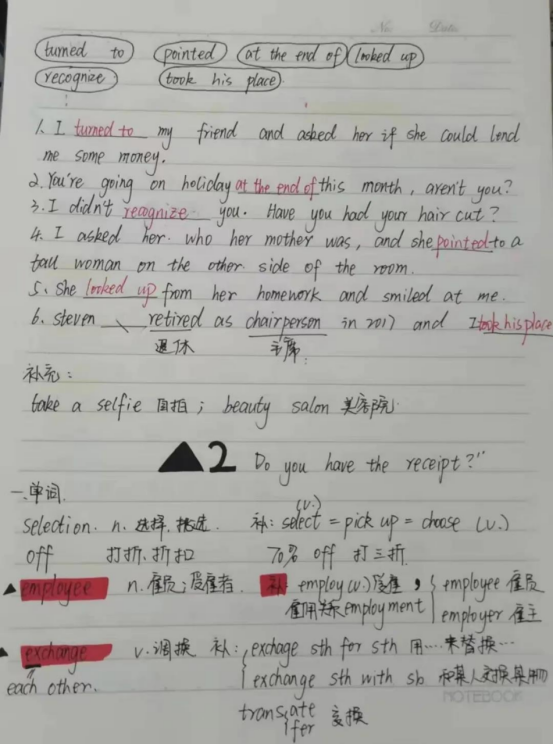 No. Date.
turned to pointed at the end of looked up
recognize took his place
1. I turned to my friend and asked her if she could lend
me some money.
2. You're going on holiday at the end of this month, aren't you?
3. I didn't recognize you. Have you had your hair cut?
4. I asked her who her mother was, and she pointed to a
tall woman on the other side of the room.
5. She looked up from her homework and smiled at me.
6. steven \ retired as chairperson in 2017 and I took his place
退休 主席
补充:
take a selfie 自拍; beauty salon 美容院
▲2 Do you have the receipt?"
一.单词.
(v.)
selection. n. 选择, 挑选. 补: select = pick up = choose (v.)
off 打折.折扣 70% off 打三折.
▲ employee n. 雇员; 受雇者. 补 employ (v.) 雇 , employee 雇员
雇用关系 employment employer 雇主
▲ exchange v. 调换 补: exchage sth for sth 用…来替换…
each other. exchange sth with sb 和某人交换某物
NOTEBOOK
translate
fer 变换